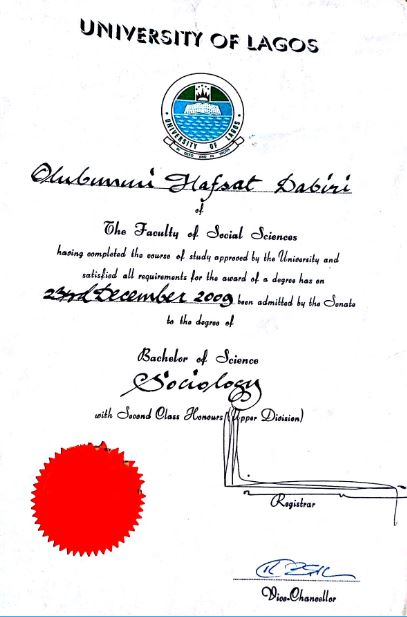 UNIVERSITY OF LAGOS
UNIVERSITY OF LAGOS
Olubunmi Hafsat Dabiri
of
The Faculty of Social Sciences
having completed the course of study approved by the University and
satisfied all requirements for the award of a degree has on
23rd December 2009 been admitted by the Senate
to the degree of
Bachelor of Science
Sociology
with Second Class Honours (Upper Division)
Registrar
Vice-Chancellor